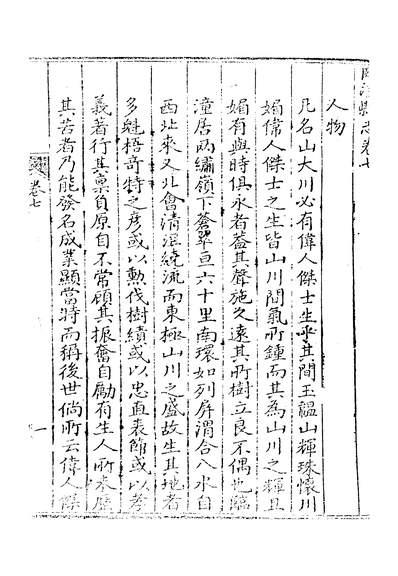 臨潼縣志卷七
人物
凡名山大川必有偉人傑士生乎其間玉韞山輝珠懷川
媚偉人傑士之生皆山川間氣所鍾而其為山川之輝且
媚有與時俱永者葢其聲施久遠其所樹立良不偶也臨
潼居兩繡嶺下蒼翠亘六十里南環如列屏渭合八水自
西北來又北會清湜繞流而東極山川之盛故生其地者
多魁梧奇特之彥或以勳伐樹績或以忠直表節或以孝
義著行其稟負原自不常顧其振奮自勵有生人所未歷
其苦者乃能發名成業顯當時而稱後世倘所云偉人傑
卷七
一